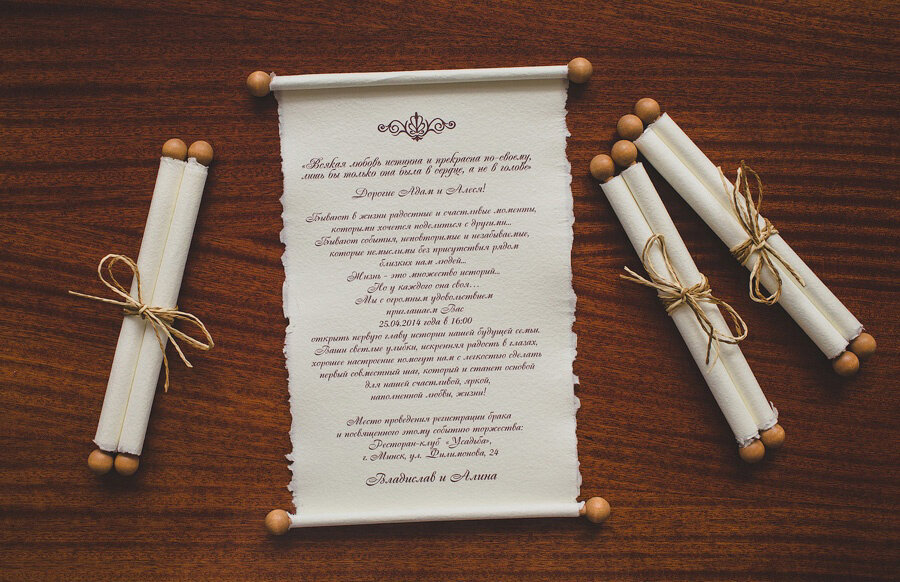 «Всякая любовь истинна и прекрасна по-своему,
лишь бы только она была в сердце, а не в голове»
Дорогие Адам и Алеся!
Бывают в жизни радостные и счастливые моменты,
которыми хочется поделиться с другими...
Бывают события, неповторимые и незабываемые,
которые немыслимы без присутствия рядом
близких нам людей...
Жизнь - это множество историй...
Но у каждого она своя...
Мы с огромным удовольствием
приглашаем Вас
25.04.2014 года в 16:00
открыть первую главу истории нашей будущей семьи.
Ваши светлые улыбки, искренняя радость в глазах,
хорошее настроение помогут нам с легкостью сделать
первый совместный шаг, который и станет основой
для нашей счастливой, яркой,
наполненной любви, жизни!
Место проведения регистрации брака
и посвященного этому событию торжества:
Ресторан-клуб «Усадьба»,
г. Минск, ул. Филимонова, 24
Владислав и Алина